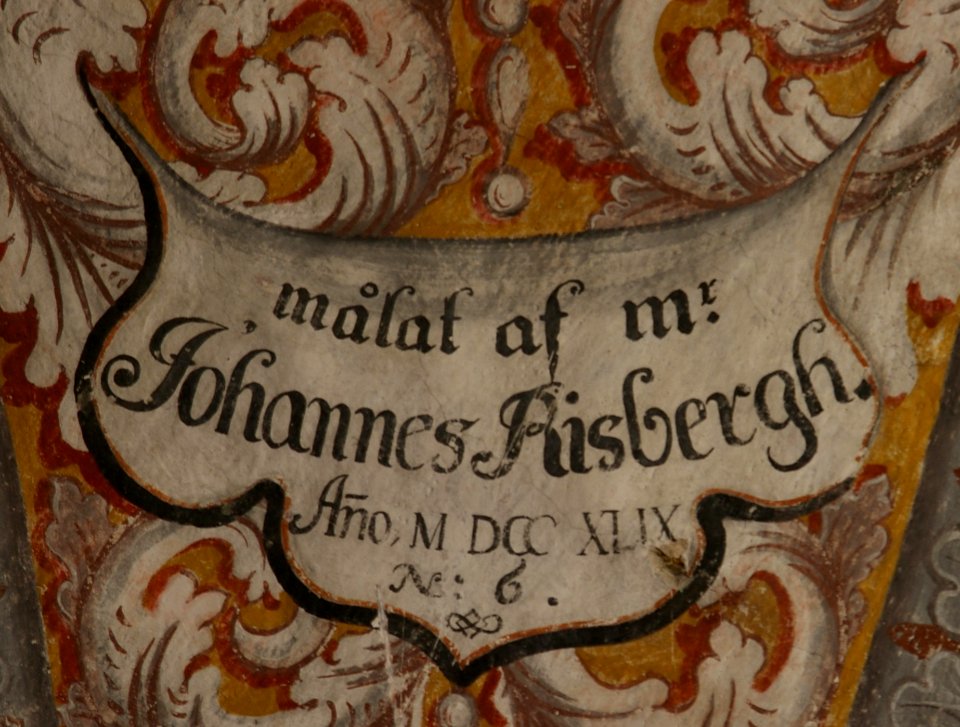 målat af mr:
Johannes Risbergh.
Año, M DCC XLIX
No: 6.